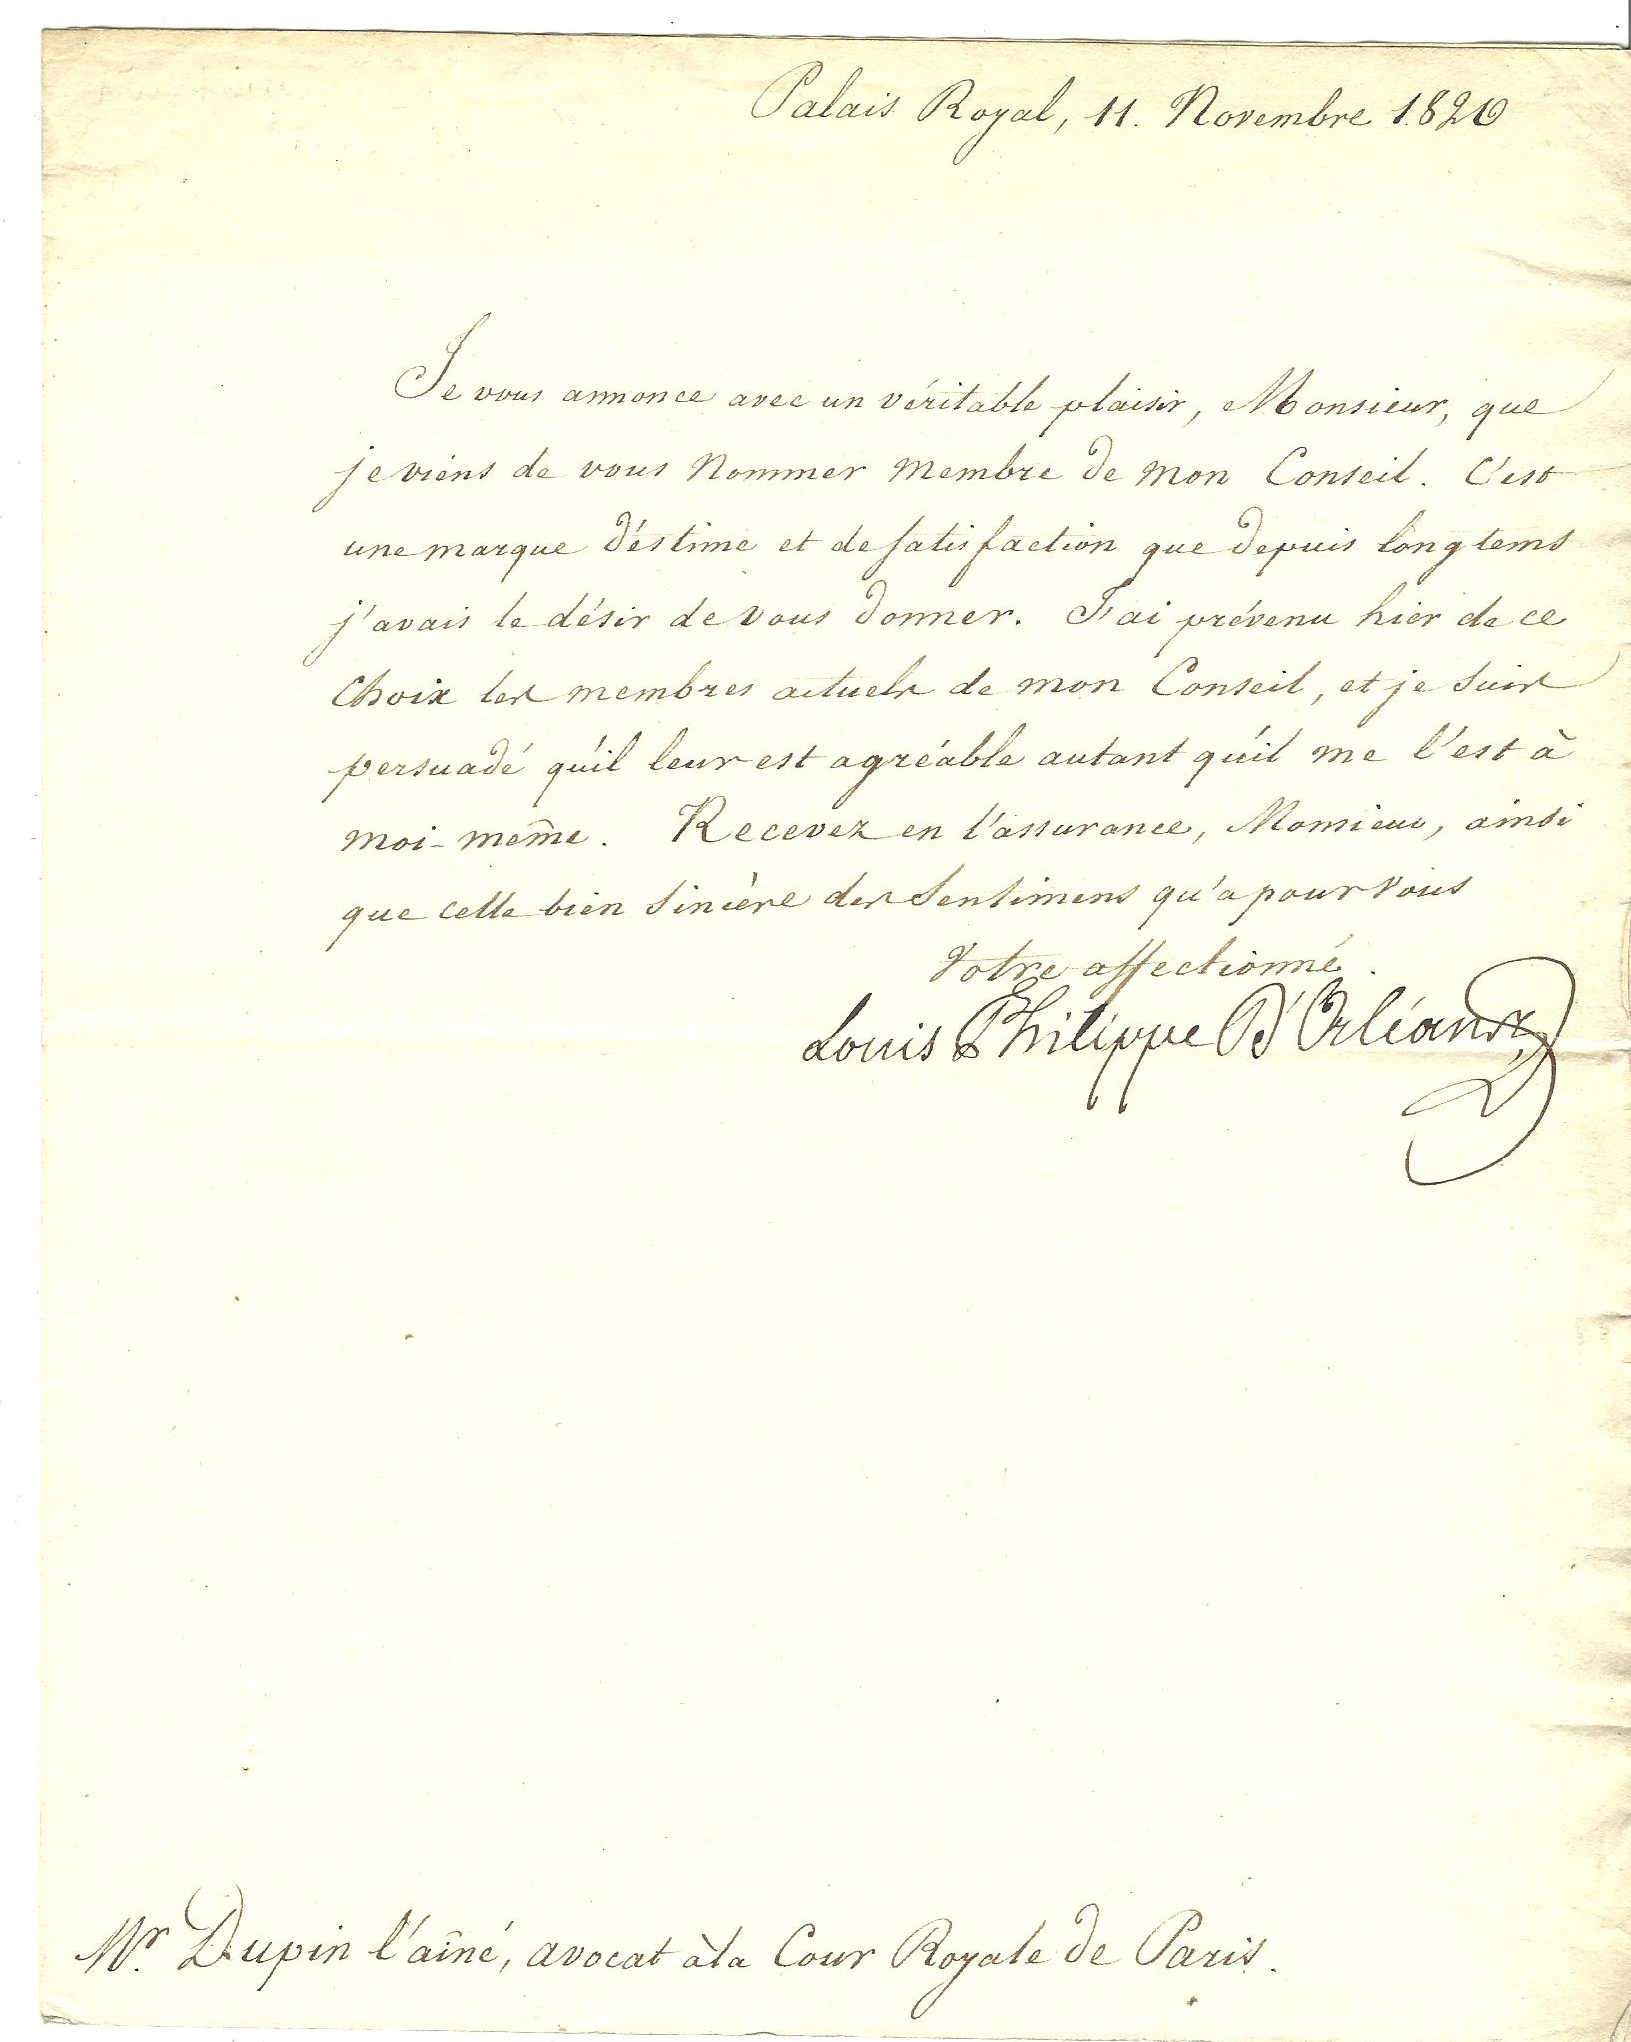 Palais Royal, 11. Novembre 1820
Je vous annonce avec un véritable plaisir, Monsieur, que
je viens de vous Nommer Membre de Mon Conseil. C'est
une marque d'éstime et de satisfaction que depuis longtems
j'avais le désir de vous donner. J'ai prévenu hier de ce
Choix les membres actuels de mon Conseil, et je suis
persuadé qu'il leur est agréable autant qu'il me l'est à
moi-même. Recevez en l'assurance, Monsieur, ainsi
que celle bien sincère des Sentimens qu'a pour vous
Votre affectionné.
Louis Philippe D'Orléans
Mr. Dupin l'aîné, avocat à la Cour Royale de Paris.